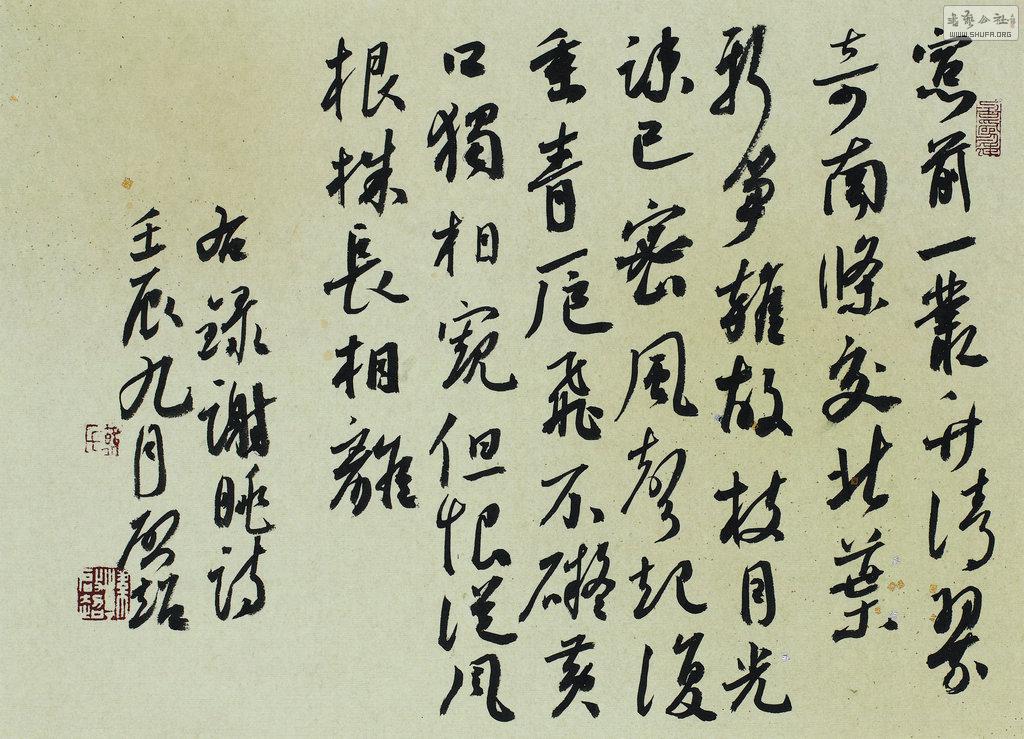 窗前一叢竹清翠
奇南條交北葉
新笋雜故枝月光
疎已密風聲起復
垂青扈飛不礙黄
口獨相窺但恨從風
根株長相離
右録謝朓詩
壬辰九月
书艺公社
WWW.SHUFA.ORG